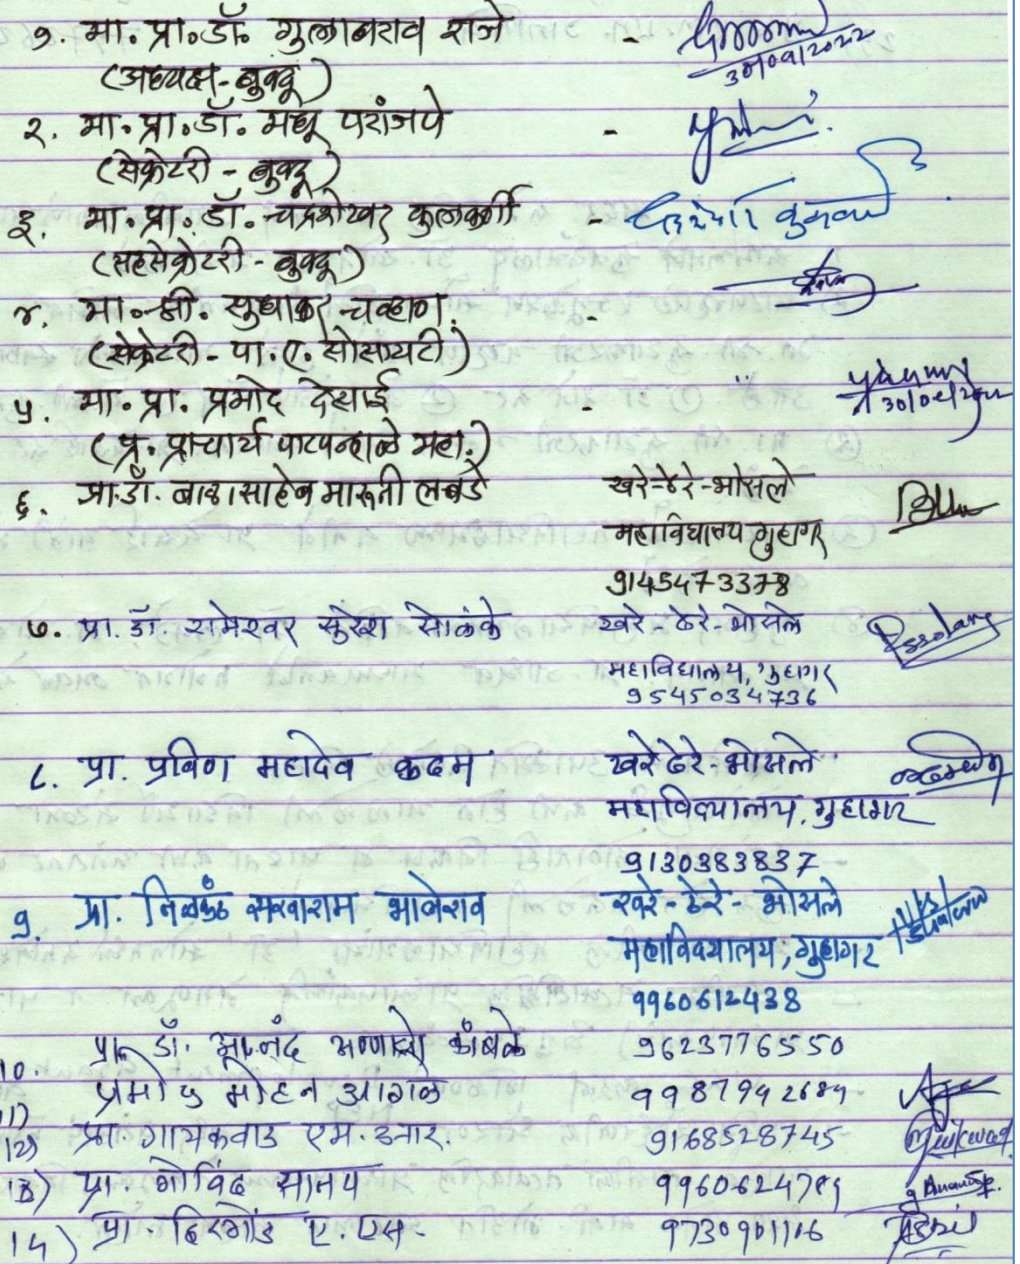 १. मा. प्रा. डॉ. गुलाबराव राजे -
30/09/2022
(अध्यक्ष - बुक्टू)
२. मा. प्रा. डॉ. मधू परांजपे -
(सेक्रेटरी - बुक्टू)
३. मा. प्रा. डॉ. चंद्रशेखर कुलकर्णी -
(सहसेक्रेटरी - बुक्टू)
४. मा. श्री. सुधाकर चव्हाण. -
(सेक्रेटरी - पा. ए. सोसायटी)
५ मा. प्रा. प्रमोद देसाई -
(प्र. प्राचार्य पाटपन्हाळे महा.)
६. प्रा. डॉ. बाळासाहेब मारूती लबडे खरे-ढेरे-भोसले
महाविद्यालय गुहागर
9145473378
७. प्रा. डॉ. रामेश्वर सुरेश सोळंके खरे ढेरे-भोसले
महाविद्यालय, गुहागर
9545034736
८. प्रा. प्रविण महादेव कदम खरे ढेरे-भोसले
महाविद्यालय, गुहागर
9130383837
9. प्रा. निळकंठ सखाराम भालेराव खरे-ढेरे-भोसले
महाविद्यालय, गुहागर
9960612438
10. प्रा. डॉ. आनंद कांबळे 9623776550
11) मोहन आगळे 9987942684
12) प्रा. गायकवाड एम. आर. 9168528745
13) प्रा. गोविंद सानप
14) प्रा. हिरगोंड ए. एस.